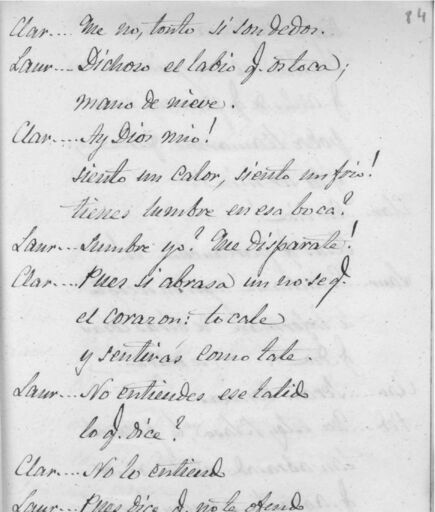 84
Clar... Que no, tonto si son dedos.
Laur... Dichoso el labio q. os toca;
mano de nieve.
Clar... Ay Dios mio!
siento un calor, siento un frio!
tienes lumbre en esa boca?
Laur... Lumbre yo? Que disparate!
Clar... Pues si abrasa un no se q.
el corazon: tocale
y sentirás como late.
Laur... No entiendes ese latid
lo q. dice?
Clar... No lo entiend
Laur... Pues dice q. no le ofend